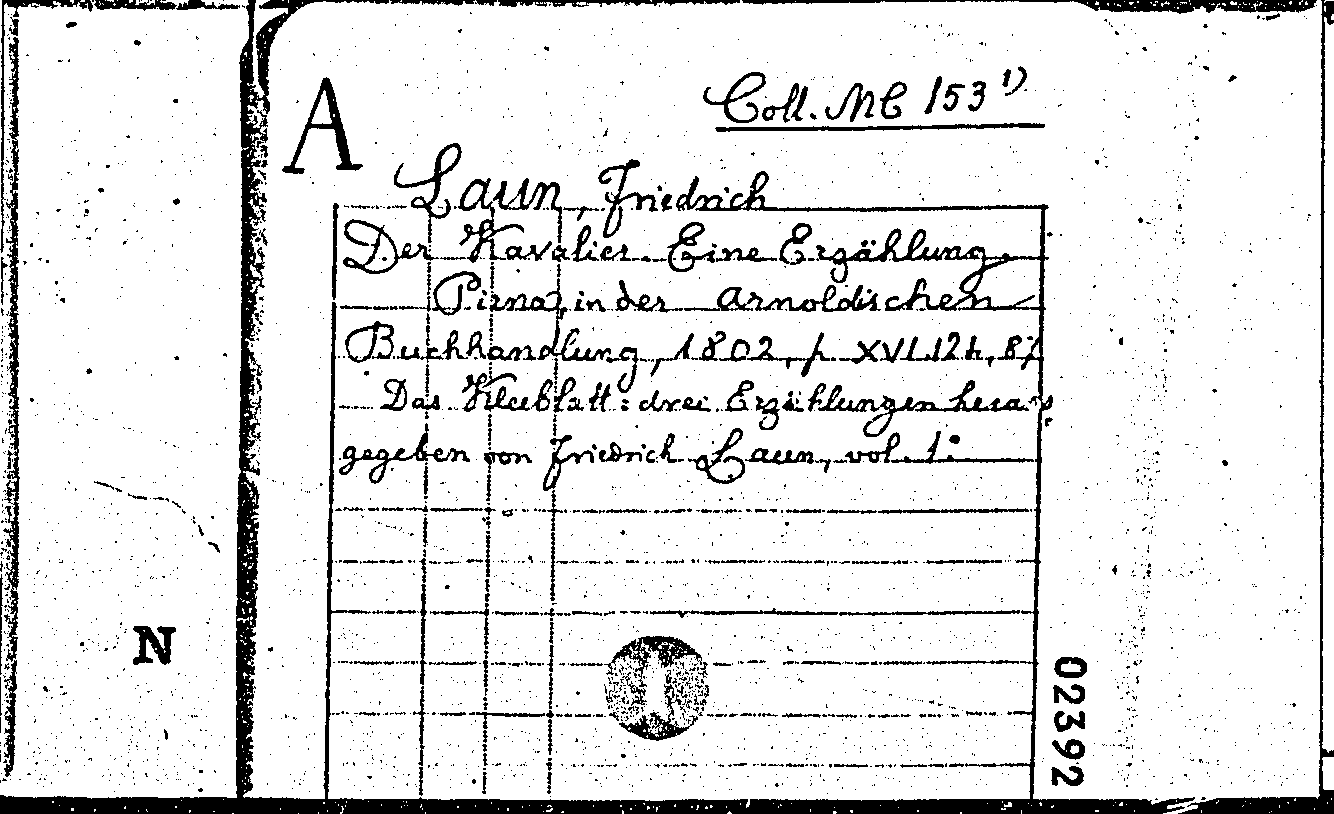 Coll. MC 153 1)
A
Laun, Friedrich
Der Kavalier. Eine Erzählung.
Pirna, in der Arnoldischen
Buchhandlung, 1802, p. XVI.124, 8°.
Das Kleeblatt: drei Erzählungen heraus
gegeben von Friedrich Laun, vol. 1:
N
02392